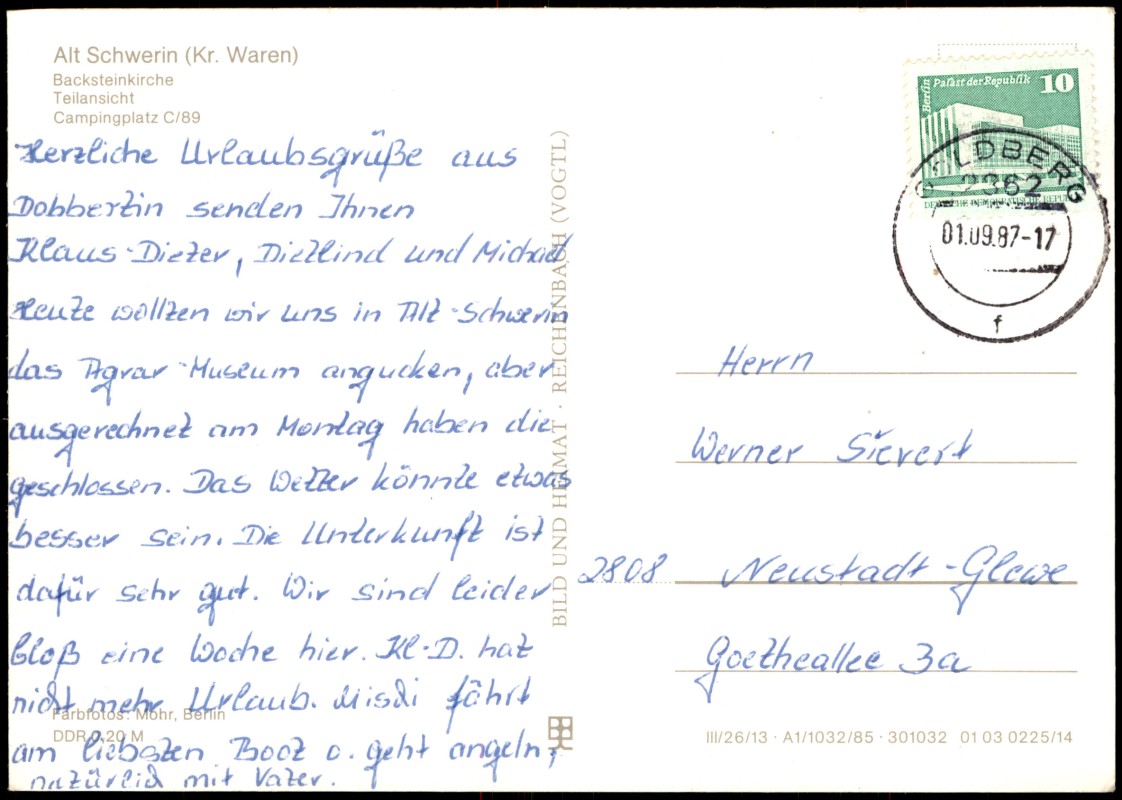 Alt Schwerin (Kr. Waren)
Backsteinkirche
Teilansicht
Campingplatz C/89
Herzliche Urlaubsgrüße aus
Dobbertin senden Ihnen
Klaus-Dieter, Dietlind und Michael
Heute wollten wir uns in Alt-Schwerin
das Agrar-Museum angucken, aber
ausgerechnet am Montag haben die
geschlossen. Das Wetter könnte etwas
besser sein. Die Unterkunft ist
dafür sehr gut. Wir sind leider
bloß eine Woche hier. Kl.-D. hat
nicht mehr Urlaub. Michi fährt
am liebsten Boot o. geht angeln,
natürlich mit Vater.
Farbfotos: Mohr, Berlin
DDR 0,20 M
BILD UND HEIMAT · REICHENBACH (VOGTL)
Berlin
Palast der Republik
10
DEUTSCHE DEMOKRATISCHE REPUBLIK
GOLDBERG
2362
01.09.87-17
f
Herrn
Werner Sievert
2808 Neustadt-Glewe
Goetheallee 3a
III/26/13 · A1/1032/85 · 301032 01 03 0225/14